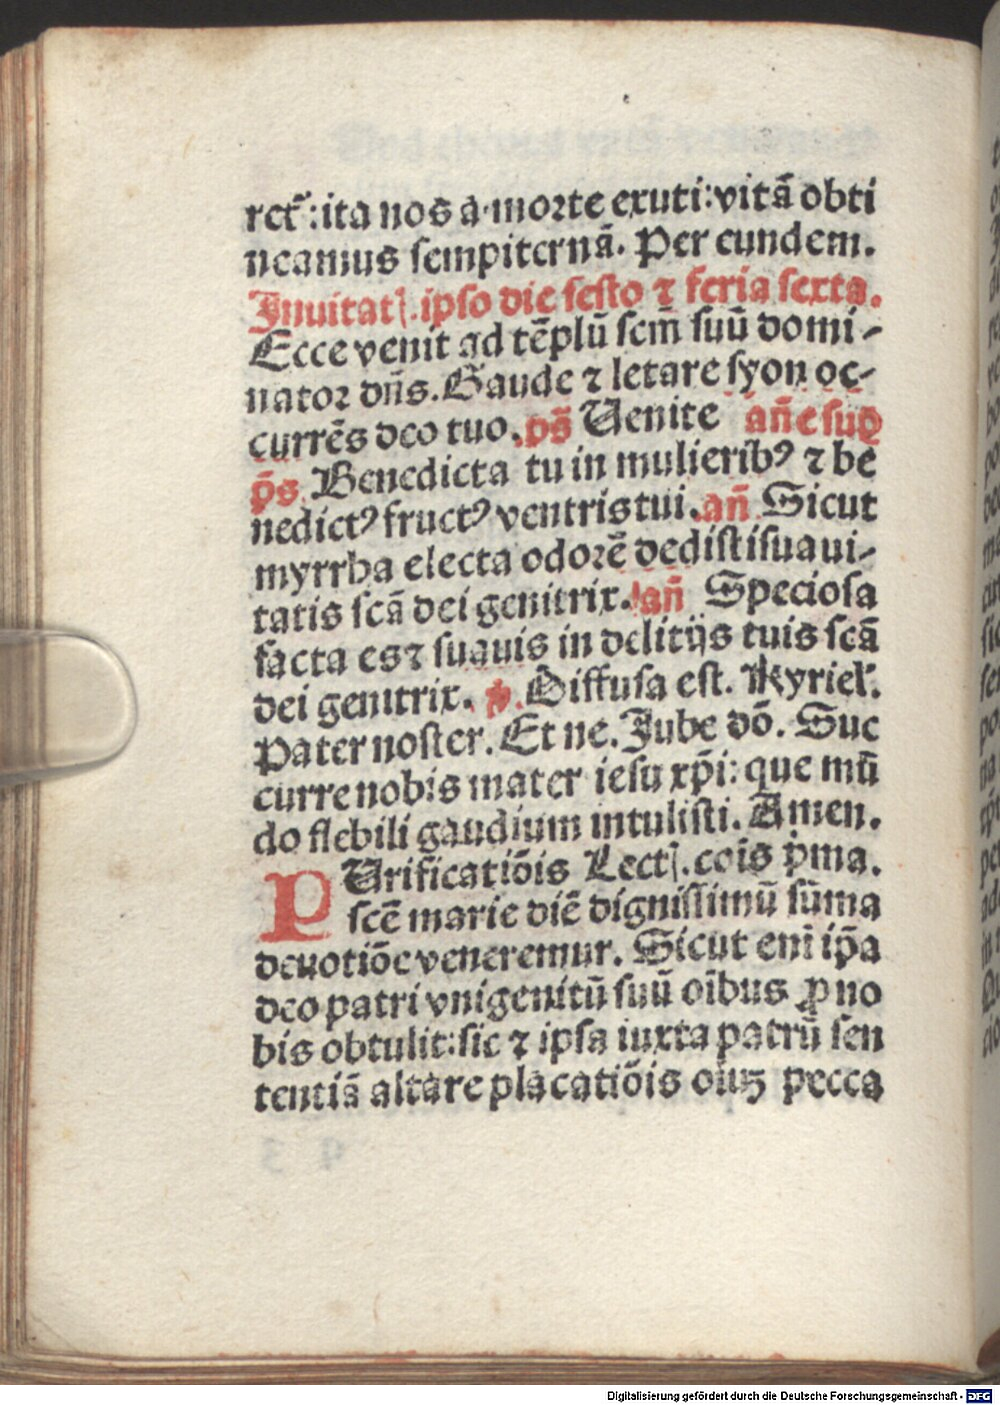 ret̄:ita nos a morte exuti:vitā obti
neamus sempiternā. Per eundem.
Inuitat. ipso die festo ⁊ feria sexta.
Ecce venit ad tēplū scm̄ suū domi-
nator dn̄s. Gaude ⁊ letare syon oc-
currēs deo tuo. ps̄ Uenite an̄e suꝑ
ps̄. Benedicta tu in mulieribꝰ ⁊ be
nedictꝰ fructꝰ ventris tui. an̄ Sicut
myrrha electa odorē dedisti suaui-
tatis scā dei genitrix. an̄ Speciosa
facta es ⁊ suauis in delitijs tuis scā
dei genitrix. ℣. Diffusa est. Kyriel'.
Pater noster. Et ne. Jube dō. Suc
curre nobis mater iesu xp̄i: que mū
do flebili gaudium intulisti. Amen.
PUrificatiōis Lect. cōis p̄ma.
scē marie diē dignissimū sūma
deuotiōe veneremur. Sicut eni ip̄a
deo patri vnigenitū suū oībus ꝓ no
bis obtulit:sic ⁊ ipsa iuxta patrū sen
tentiā altare placatiōis oiuꝫ pecca
Digitalisierung gefördert durch die Deutsche Forschungsgemeinschaft - DFG